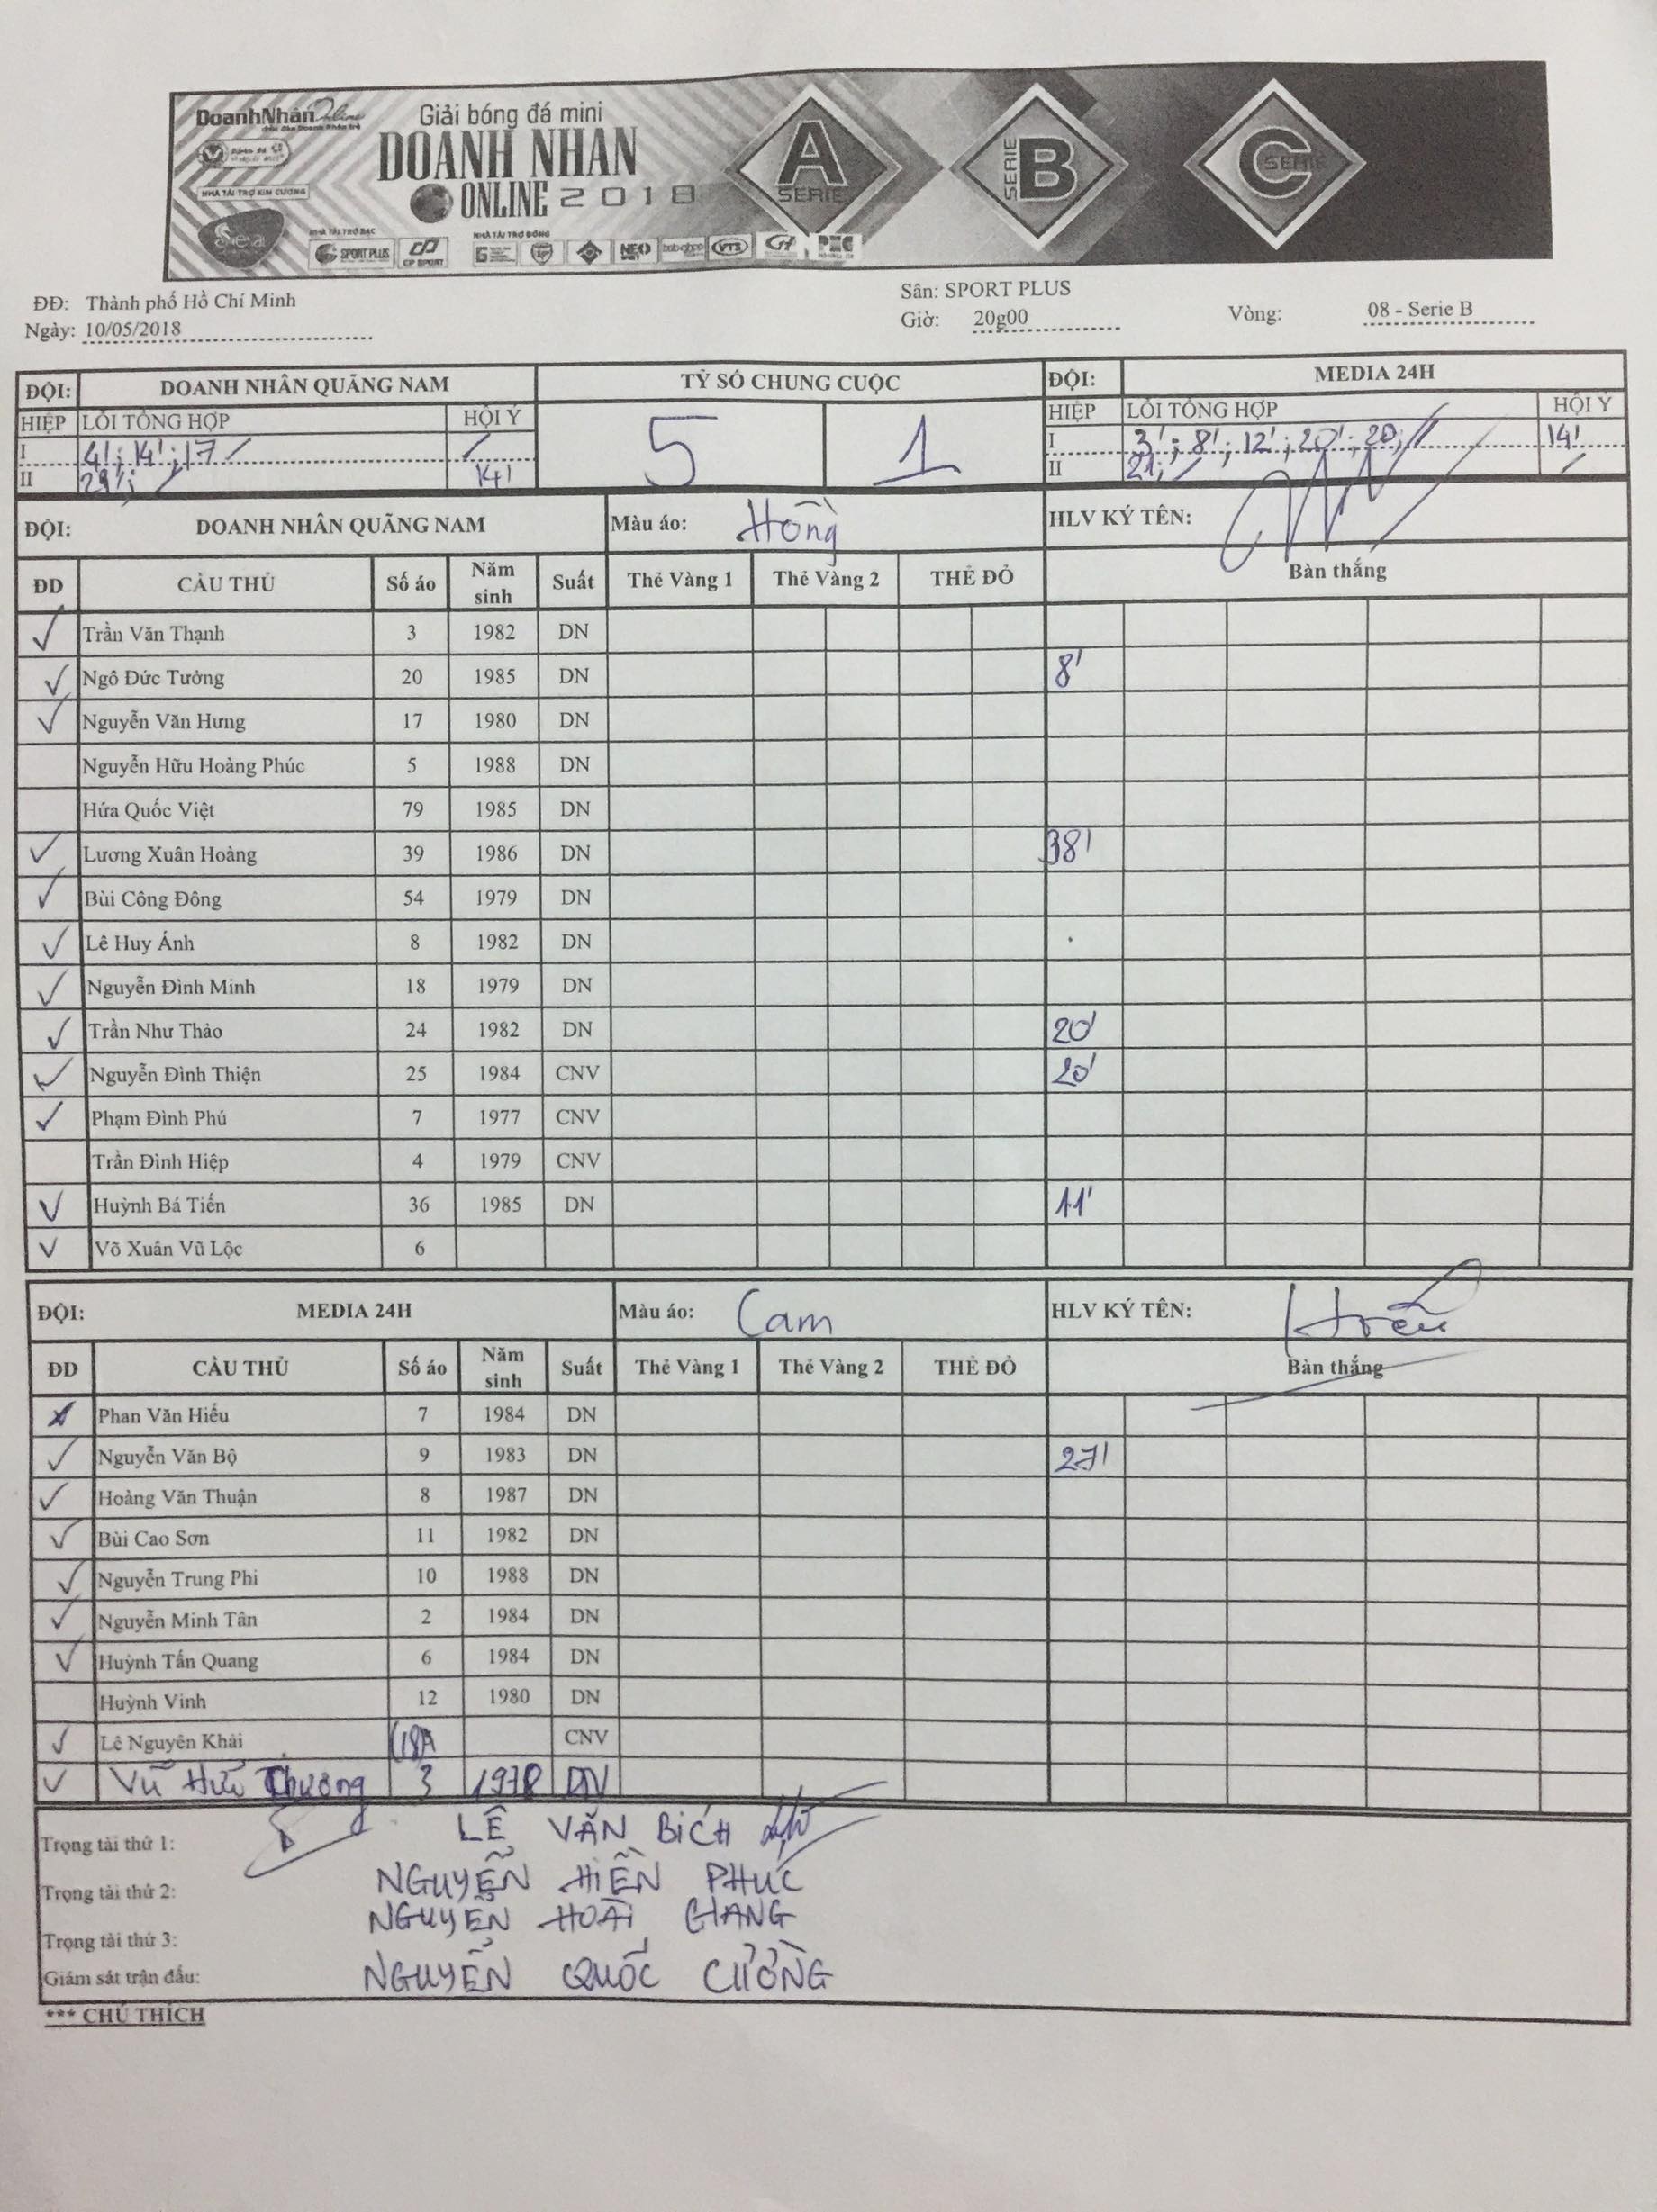 DoanhNhânOnline
Giải bóng đá mini
DOANH NHAN
ONLINE 2018
A SERIE
SERIE B
C SERIE
NHÀ TÀI TRỢ KIM CƯƠNG
Sea
NHÀ TÀI TRỢ BẠC
NHÀ TÀI TRỢ ĐỒNG
SPORT PLUS CP SPORT NEO VTS
ĐĐ: Thành phố Hồ Chí Minh Sân: SPORT PLUS
Ngày: 10/05/2018 Giờ: 20g00 Vòng: 08 - Serie B
ĐỘI: DOANH NHÂN QUÃNG NAM TỶ SỐ CHUNG CUỘC ĐỘI: MEDIA 24H
HIỆP LỖI TỔNG HỢP HỘI Ý 5 1 HIỆP LỖI TỔNG HỢP HỘI Ý
I 4'; 14'; 17 / / I 3'; 8'; 12'; 20'; 20; // 14'
II 29'; / 14' II 21; / /
ĐỘI: DOANH NHÂN QUÃNG NAM Màu áo: Hồng HLV KÝ TÊN:
ĐD CẦU THỦ Số áo Năm sinh Suất Thẻ Vàng 1 Thẻ Vàng 2 THẺ ĐỎ Bàn thắng
✓ Trần Văn Thạnh 3 1982 DN
✓ Ngô Đức Tưởng 20 1985 DN 8'
✓ Nguyễn Văn Hưng 17 1980 DN
Nguyễn Hữu Hoàng Phúc 5 1988 DN
Hứa Quốc Việt 79 1985 DN
✓ Lương Xuân Hoàng 39 1986 DN 38'
✓ Bùi Công Đông 54 1979 DN
✓ Lê Huy Ánh 8 1982 DN
✓ Nguyễn Đình Minh 18 1979 DN
✓ Trần Như Thảo 24 1982 DN 20'
✓ Nguyễn Đình Thiện 25 1984 CNV 20'
✓ Phạm Đình Phú 7 1977 CNV
Trần Đình Hiệp 4 1979 CNV
✓ Huỳnh Bá Tiến 36 1985 DN 11'
✓ Võ Xuân Vũ Lộc 6
ĐỘI: MEDIA 24H Màu áo: Cam HLV KÝ TÊN:
ĐD CẦU THỦ Số áo Năm sinh Suất Thẻ Vàng 1 Thẻ Vàng 2 THẺ ĐỎ Bàn thắng
Phan Văn Hiếu 7 1984 DN
✓ Nguyễn Văn Bộ 9 1983 DN 27'
✓ Hoàng Văn Thuận 8 1987 DN
✓ Bùi Cao Sơn 11 1982 DN
✓ Nguyễn Trung Phi 10 1988 DN
✓ Nguyễn Minh Tân 2 1984 DN
✓ Huỳnh Tấn Quang 6 1984 DN
Huỳnh Vinh 12 1980 DN
✓ Lê Nguyên Khải CNV
✓ Vũ Hữu Thương 3 1978 DN
Trọng tài thứ 1: LÊ VĂN BÍCH
Trọng tài thứ 2: NGUYỄN HIỀN PHÚC
Trọng tài thứ 3: NGUYỄN HOÀI GIANG
Giám sát trận đấu: NGUYỄN QUỐC CƯỜNG
*** CHÚ THÍCH